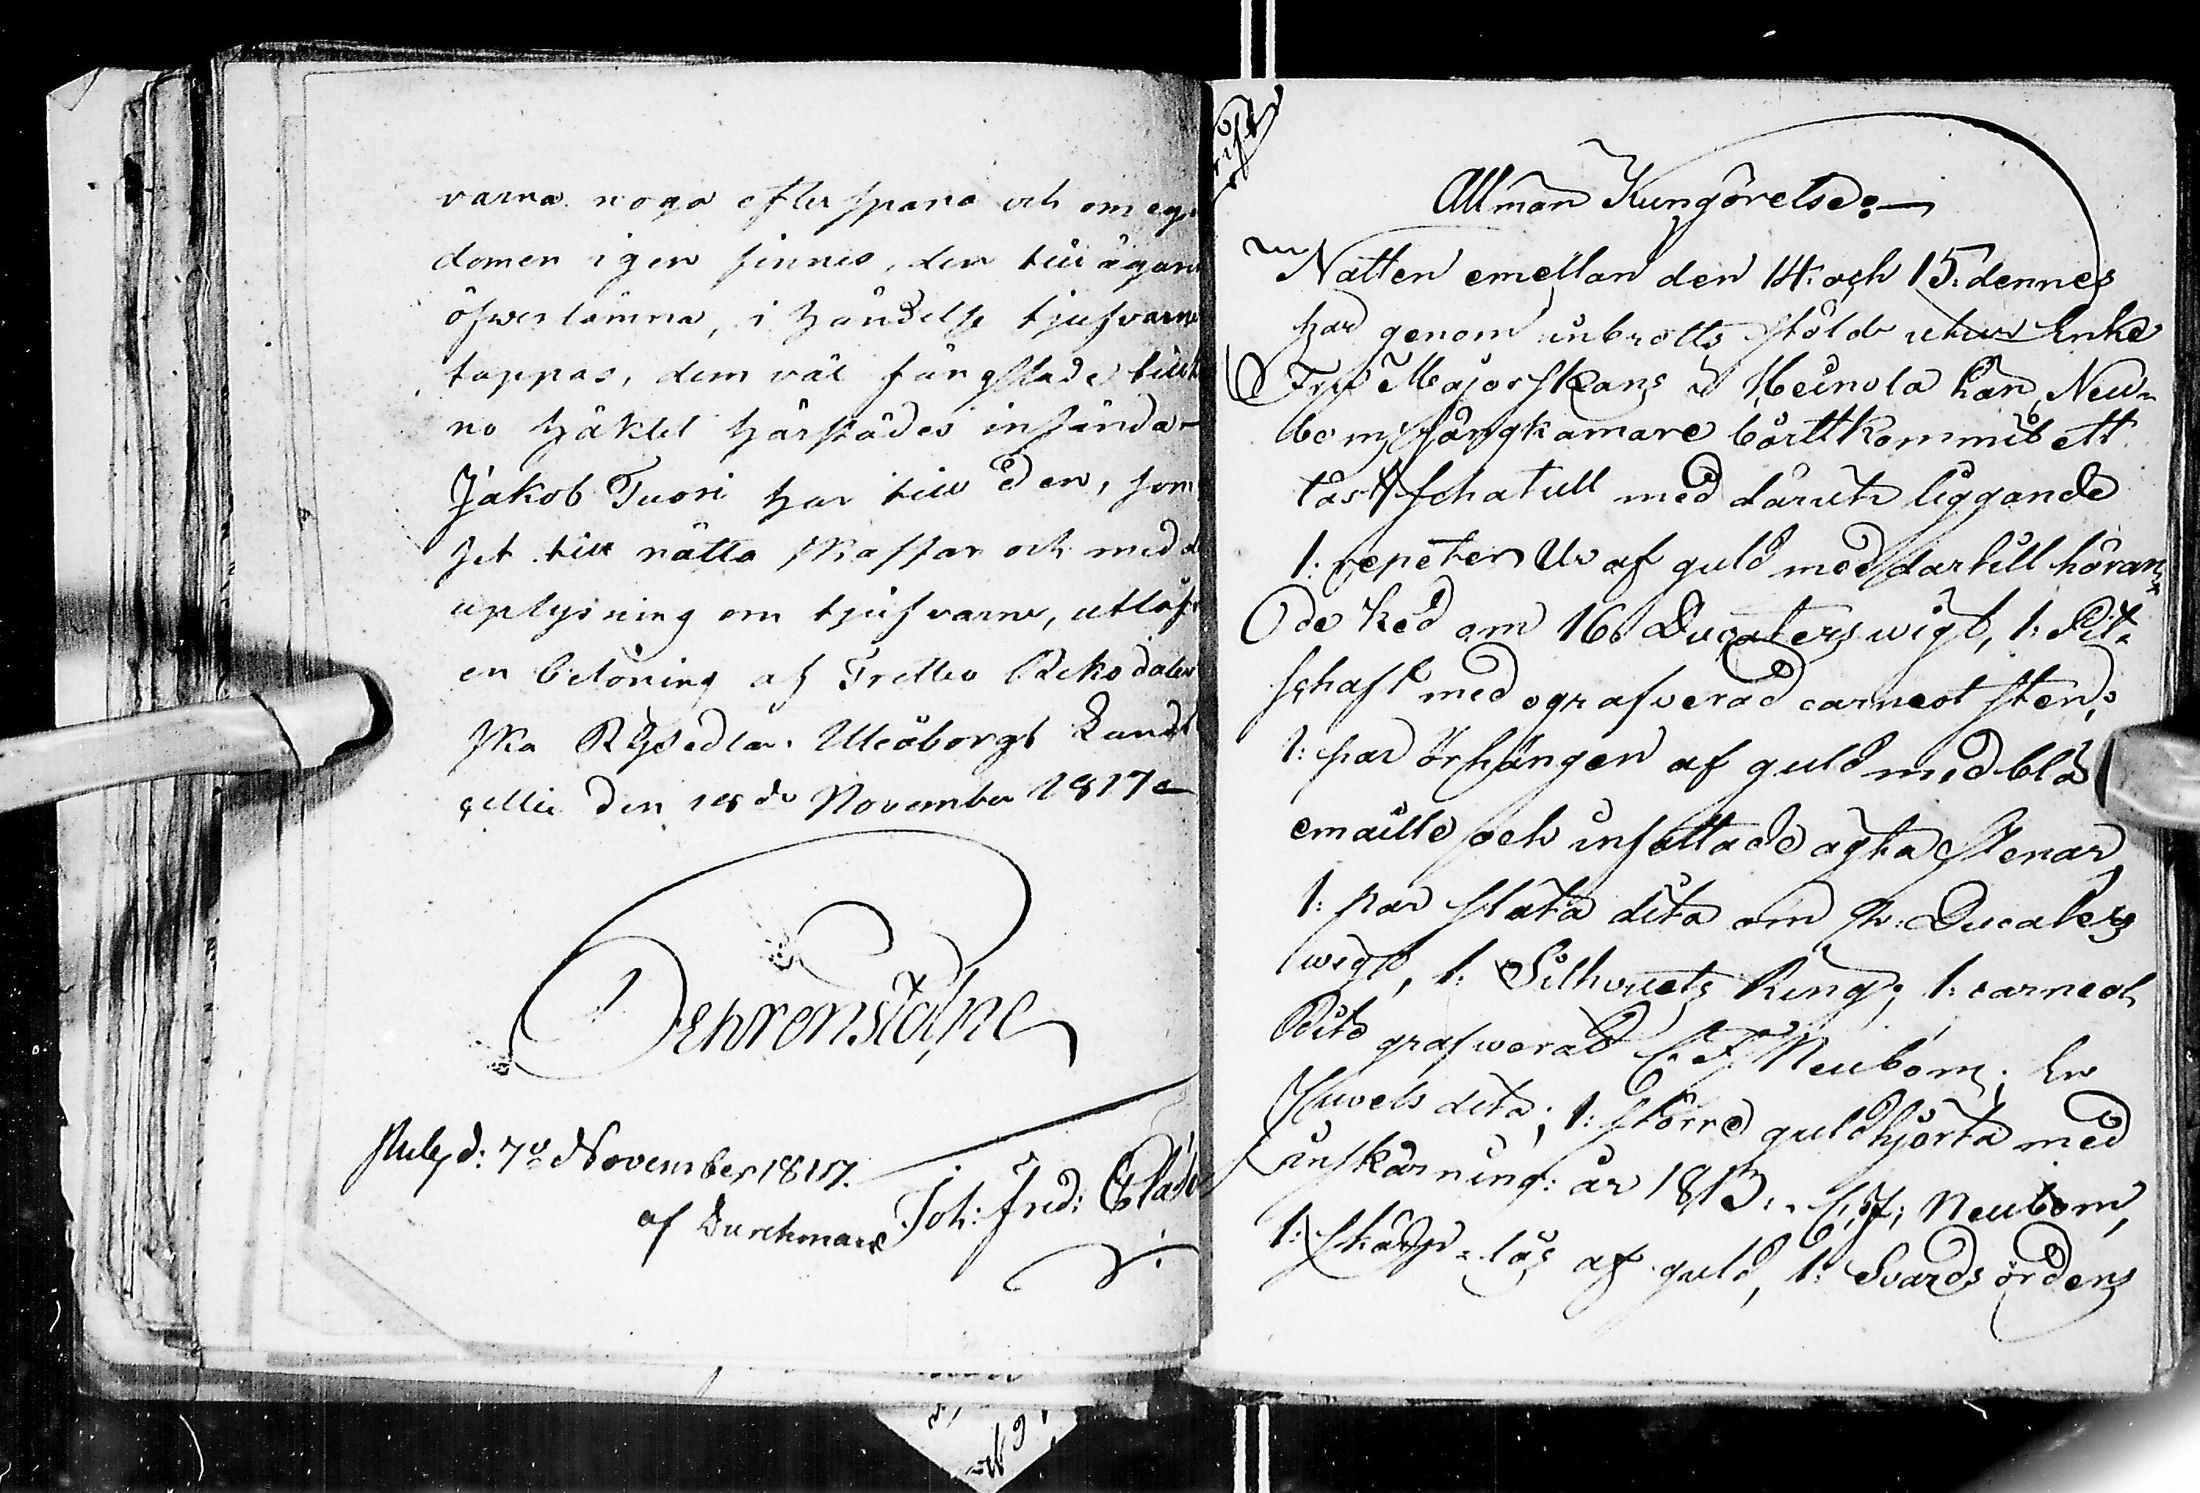 varna noga efterspana och om egen
domen igen finnes, den till ägaren
öfwerlämna, i händelse tjufvarne
tappas, dem väl fängslade till
no häktet härstädes insända
Jakob Tuori har till den, som
till rätta skaffar och med
uplysning om tjufvarne, utläf
en belöning af Trettio Riksdaler
ska Rgsedlar. Uleåborgs Landt
cellie den November 1817
Ehrenstolpe
Pulp d: 7de November 1817.
af Burchman Joh: Fred:
Allmän Kungörelse:
Natten emellan den 14. och 15: dennes
har genom inbrotts stöld utur Enke
Fru Majorskans i Heinola Neu-
boms sängkamare bårttkommit ett
låst schatull med däruti liggande
1: repeter Ur af guld med dartill höran
de ked om 16 Ducaters wigt, 1: Pit-
schaft med ografverad carneol sten,
1: par örhängen af guld med blå
emaille och insattade ägta stenar,
1: par släta dita om Ducaters
wigt, 1: Silhouets Ring, 1: carneol
Dito grafwerad C. F. Neubom; En
Juvels dito; 1: större guldhjerta med
inskärning: år 1813. C. F. Neubom,
1: skärp-lås af guld, 1: Svärds ordens